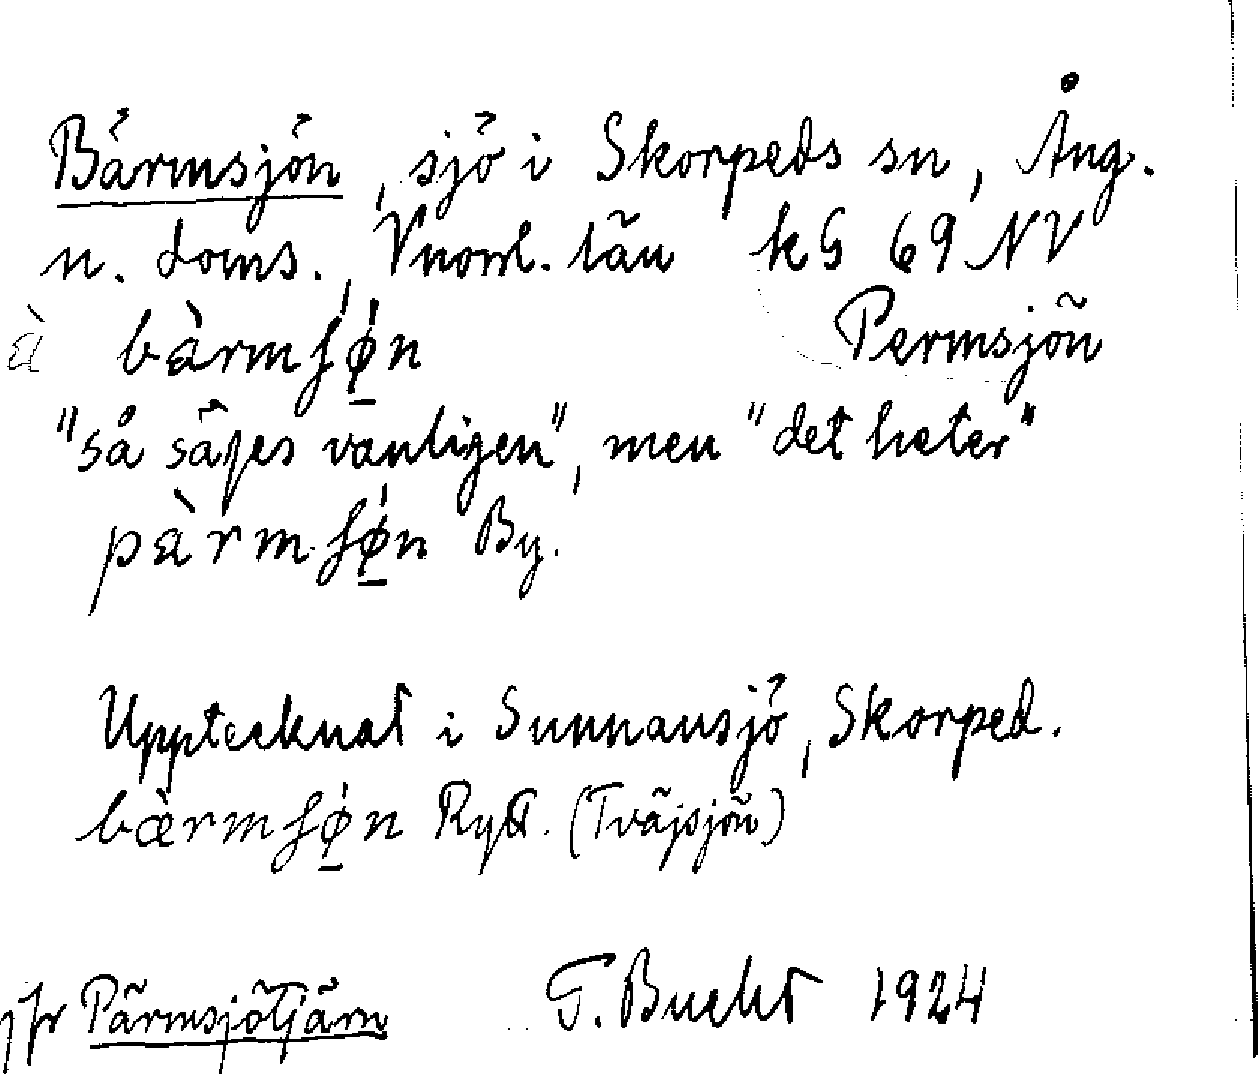 Bärmsjön, sjö i Skorpeds sn, Ång.
n. doms., Vnorrl. län kG 69 NV
à bàrmʃø̀n Permsjön
"så säjes vanligen", men "det heter"
pàrmʃø̀n By.
Upptecknat i Sunnansjö, Skorped.
bæ̀rmʃø̀n Rydt. (Tväjsjön)
jfr Pärmsjötjärn T. Bucht 1924